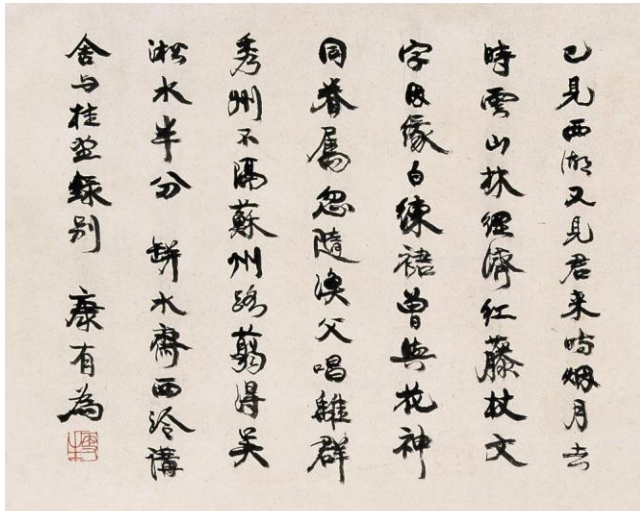 已見西湖又見君来時烟月去
時雲山林經濟紅藤杖文
字因緣白練裙曾與花神
同眷屬忽隨漁父唱離群
秀州不隔蘇州路蔫得吴
淞水半分 缾水齋西泠講
舍与桂堂錄别 康有為